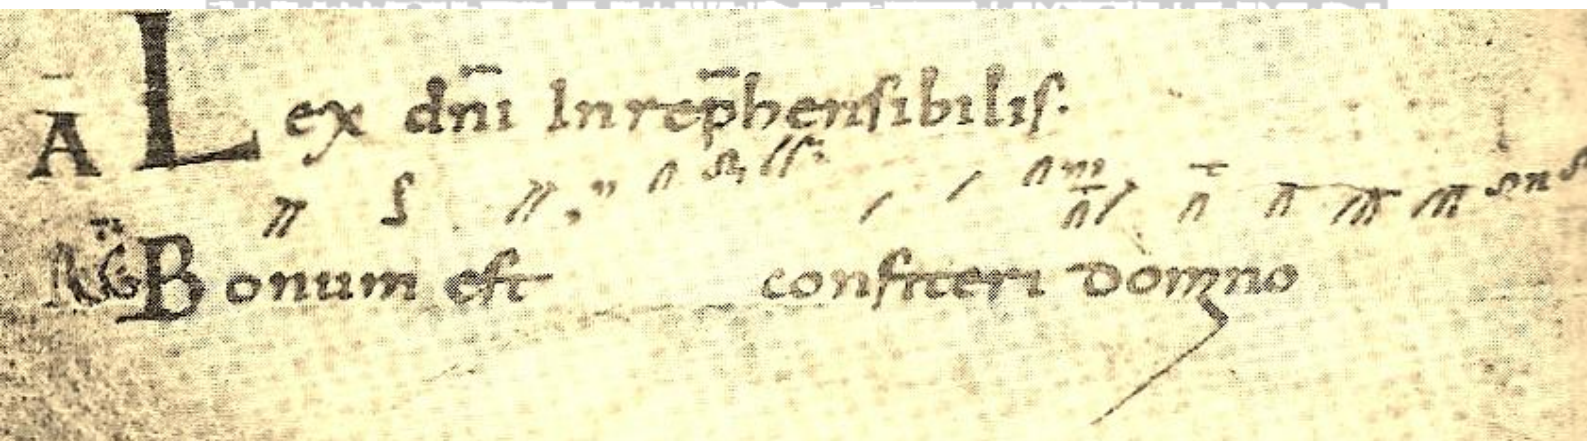 Ā Lex dn̄i Inrep̄hensibilis.
RG Bonum est confiteri domno